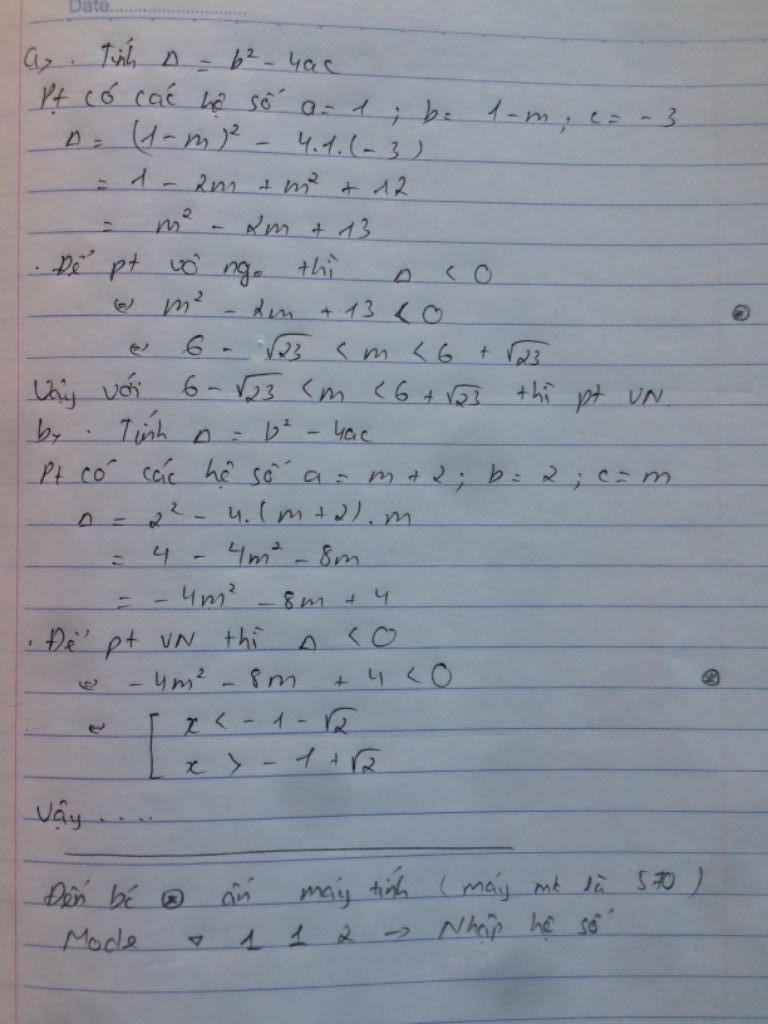 Date
a, . Tính Δ = b² - 4ac
Pt có các hệ số a = 1 ; b = 1-m ; c = -3
Δ = (1-m)² - 4.1.(-3)
= 1 - 2m + m² + 12
= m² - 2m + 13
. Để pt vô ngo thì Δ < 0
⇔ m² - 2m + 13 < 0 ⊛
⇔ 6 - √23 < m < 6 + √23
Vậy với 6 - √23 < m < 6 + √23 thì pt VN
b, . Tính Δ = b² - 4ac
Pt có các hệ số a = m + 2 ; b = 2 ; c = m
Δ = 2² - 4.(m+2).m
= 4 - 4m² - 8m
= -4m² - 8m + 4
. Để pt VN thì Δ < 0
⇔ -4m² - 8m + 4 < 0 ⊛
⇔ [ x < -1 - √2
x > -1 + √2
Vậy ....
Đến bc ⊛ ấn máy tính (máy mk là 570)
Mode ▿ 1 1 2 → Nhập hệ số